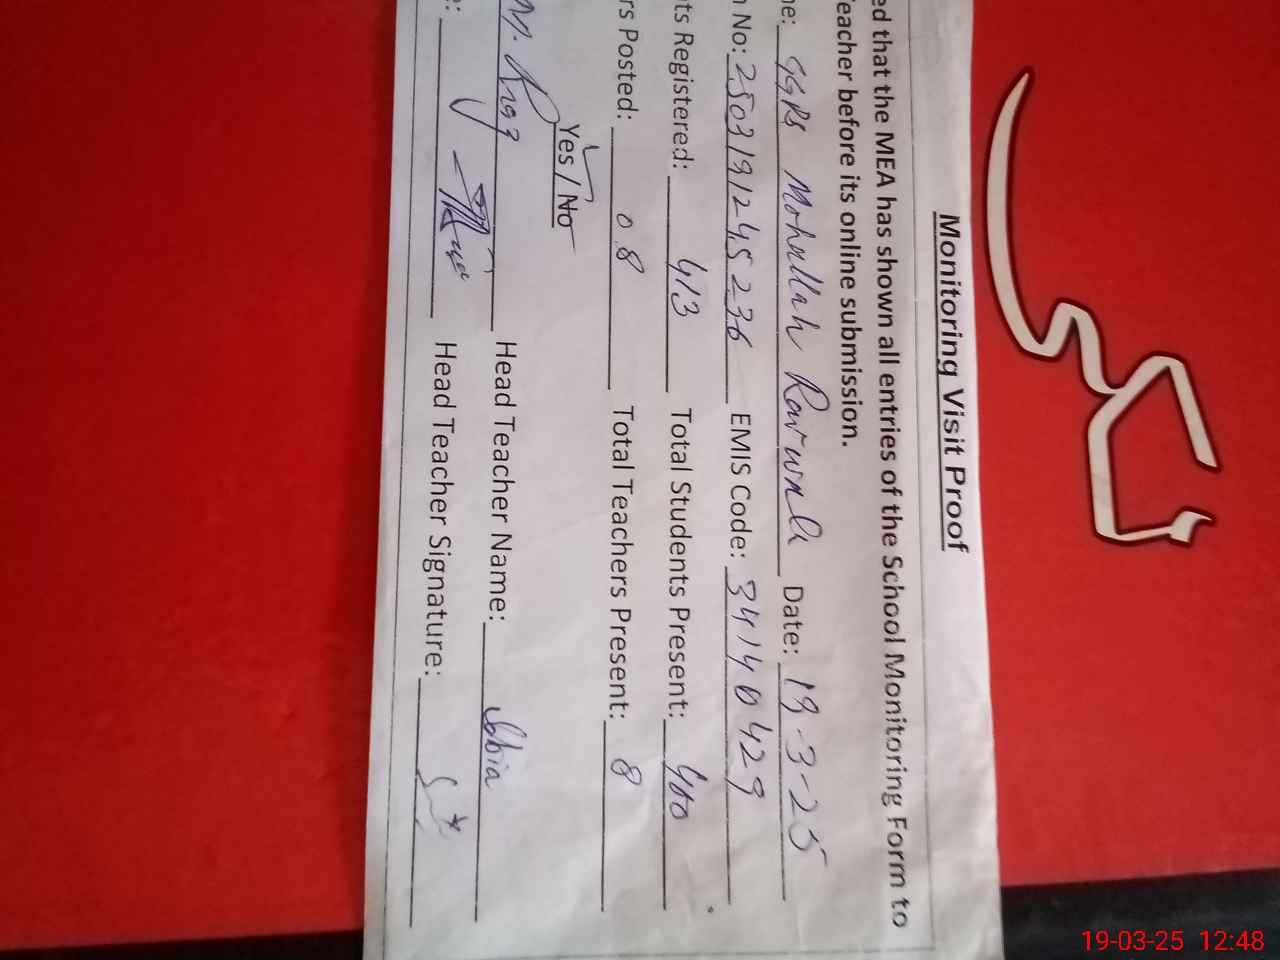 Monitoring Visit Proof
ed that the MEA has shown all entries of the School Monitoring Form to
eacher before its online submission.
ne: GGPS Mohallah Date: 19-3-25
n No: 2503191245236 EMIS Code: 34140429
ts Registered: 413 Total Students Present: 400
rs Posted: 08 Total Teachers Present: 8
Yes / No
M. Head Teacher Name:
e: Head Teacher Signature:
19-03-25 12:48